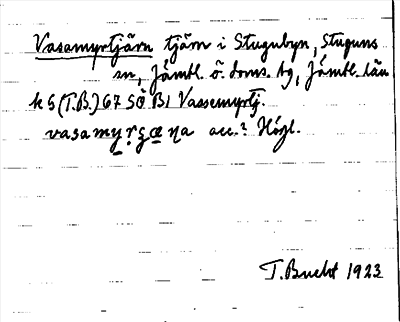 Vasamyrtjärn tjärn i Stugubyn, Stuguns
sn, Jämtl. ö. doms. tg, Jämtl. län
k 5 (T.B.) 67 SÖ B1 Vassemyrtj.
vasamy̲r̥ʒæ̲ɳa acc.? Högl.
T. Bucht 1923